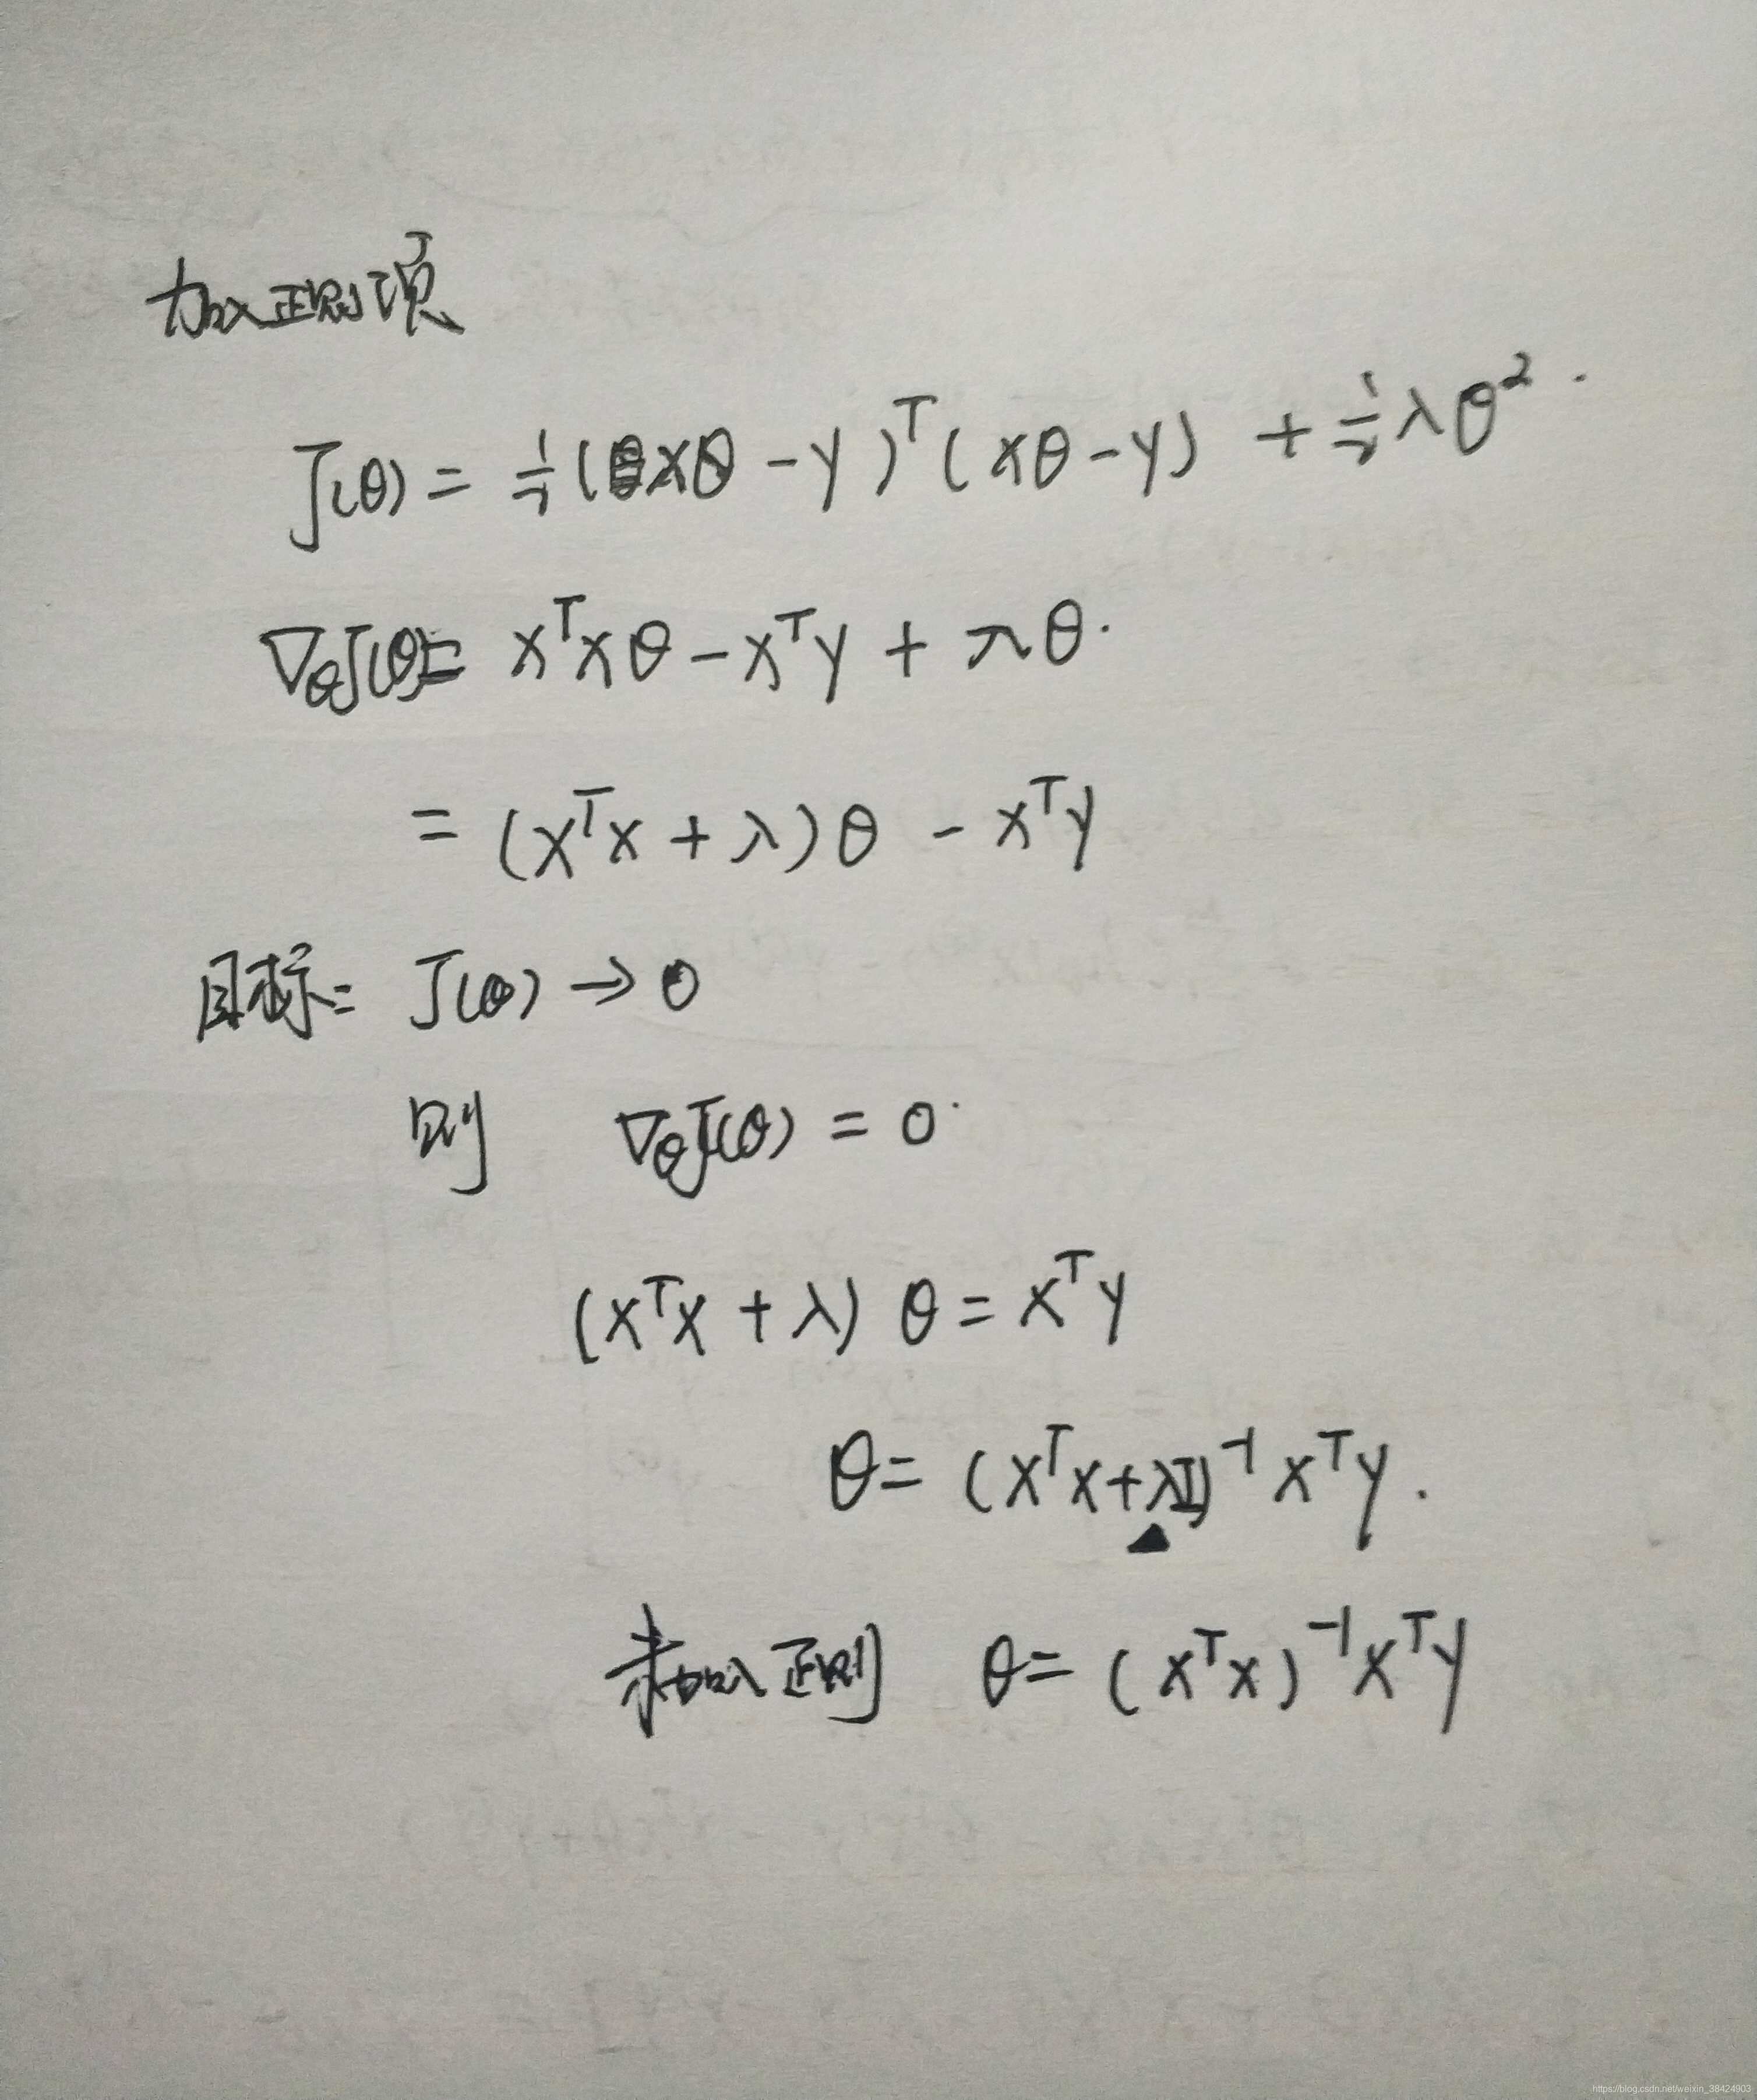 加入正则项
J(θ) = ½(Xθ - y)ᵀ(Xθ - y) + ½λθ².
∇θJ(θ) = XᵀXθ - Xᵀy + λθ.
= (XᵀX + λ)θ - Xᵀy
目标: J(θ) → 0
则 ∇θJ(θ) = 0.
(XᵀX + λ) θ = Xᵀy
θ = (XᵀX + λI)⁻¹Xᵀy.
未加入正则 θ = (XᵀX)⁻¹Xᵀy
https://blog.csdn.net/weixin_38424903